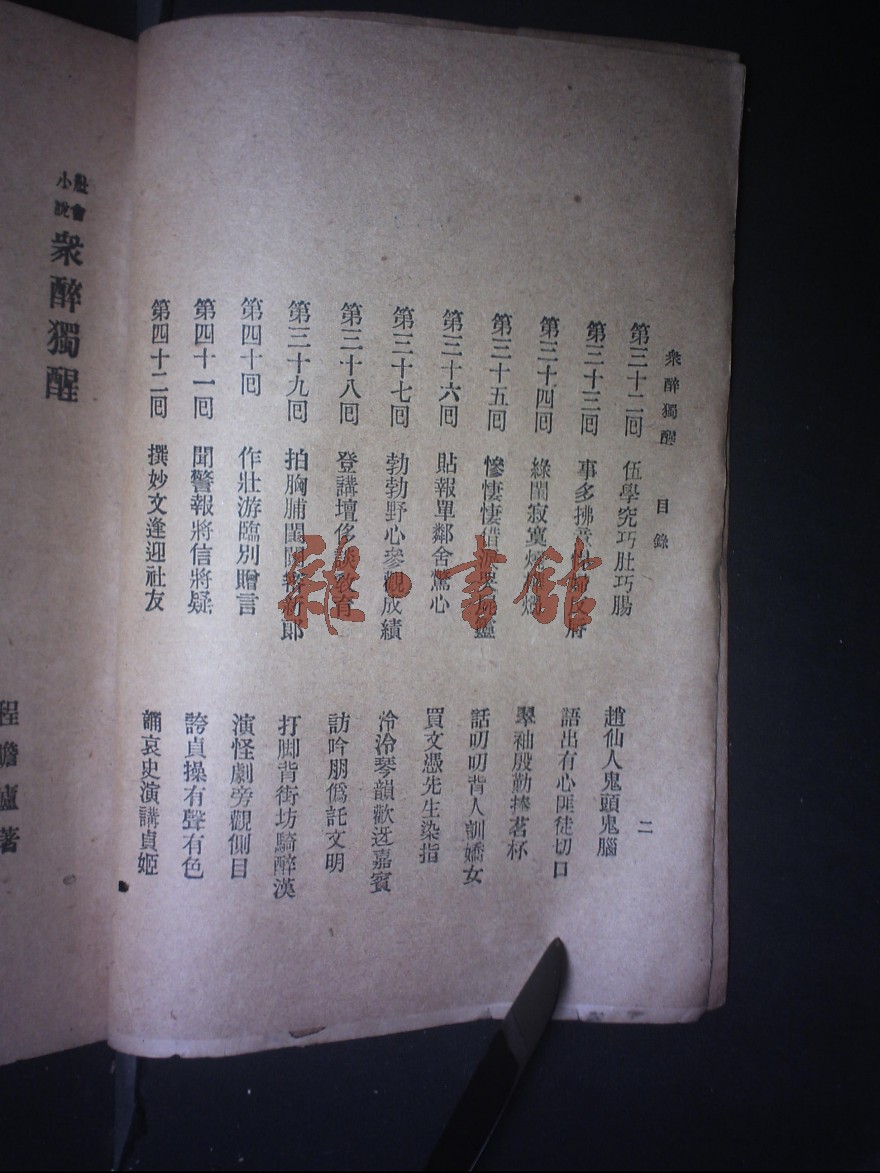 衆醉獨醒 目錄 二
第三十二回 伍學究巧肚巧腸 趙仙人鬼頭鬼腦
第三十三回 事多拂 語出有心匪徒切口
第三十四回 綠閨寂寞 翠袖殷勤捧茗杯
第三十五回 慘悽悽借 靈 話叨叨背人訓嬌女
第三十六回 貼報單鄰舍驚心 買文憑先生染指
第三十七回 勃勃野心參觀成績 泠泠琴韻歡迓嘉賓
第三十八回 登講壇侈談敎育 訪吟朋僞託文明
第三十九回 拍胸脯閨 新郞 打脚背街坊騎醉漢
第四十回 作壯游臨別贈言 演怪劇旁觀側目
第四十一回 聞警報將信將疑 誇貞操有聲有色
第四十二回 撰妙文逢迎社友 誦哀史演講貞姬
社會小說 衆醉獨醒
程瞻廬著